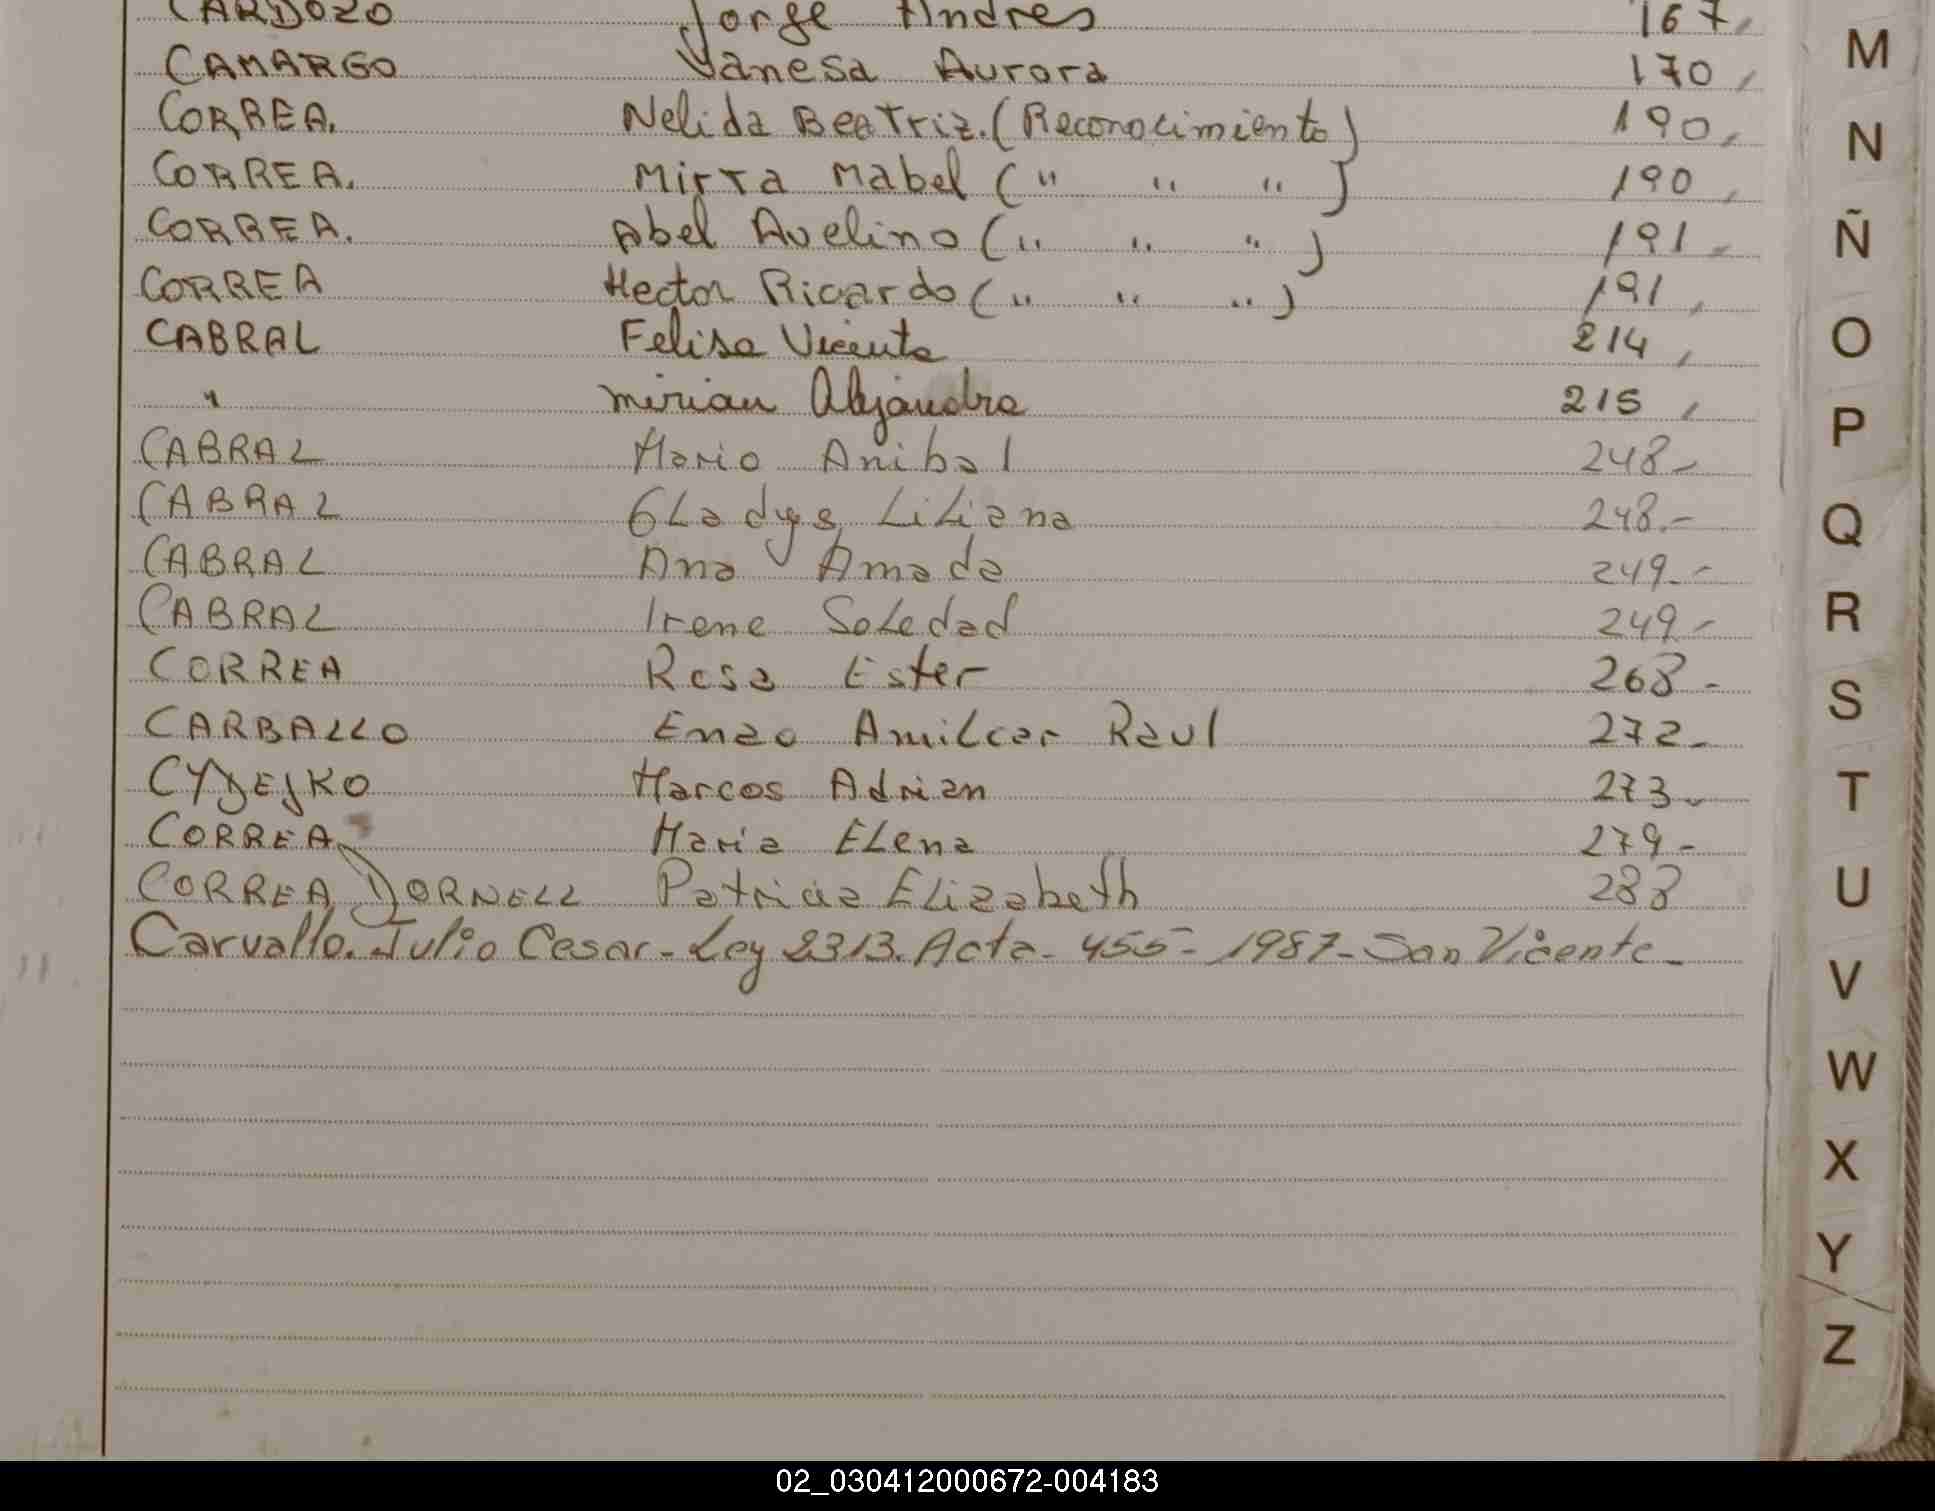 CARDOZO Jorge Andres 167,
CAMARGO Vanesa Aurora 170,
CORREA. Nelida Beatriz. (Reconocimiento) 190,
CORREA. Mirta Mabel ( " " " ) 190,
CORREA. Abel Avelino ( " " " ) 191,
CORREA Hector Ricardo ( " " " ) 191,
CABRAL Felisa Vicenta 214,
" Mirian Alejandra 215,
CABRAL Mario Anibal 248-
CABRAL Gladys Liliana 248.-
CABRAL Ana Amada 249.-
CABRAL Irene Soledad 249-
CORREA Rosa Ester 268-
CARBALLO Enzo Amilcar Raul 272-
CYDEJKO Marcos Adrian 273-
CORREA Maria Elena 279-
CORREA DORNELL Patricia Elizabeth 288
Carvallo. Julio Cesar - Ley 2313. Acta - 455 - 1987 - San Vicente -
M
N
Ñ
O
P
Q
R
S
T
U
V
W
X
Y/Z
02_030412000672-004183